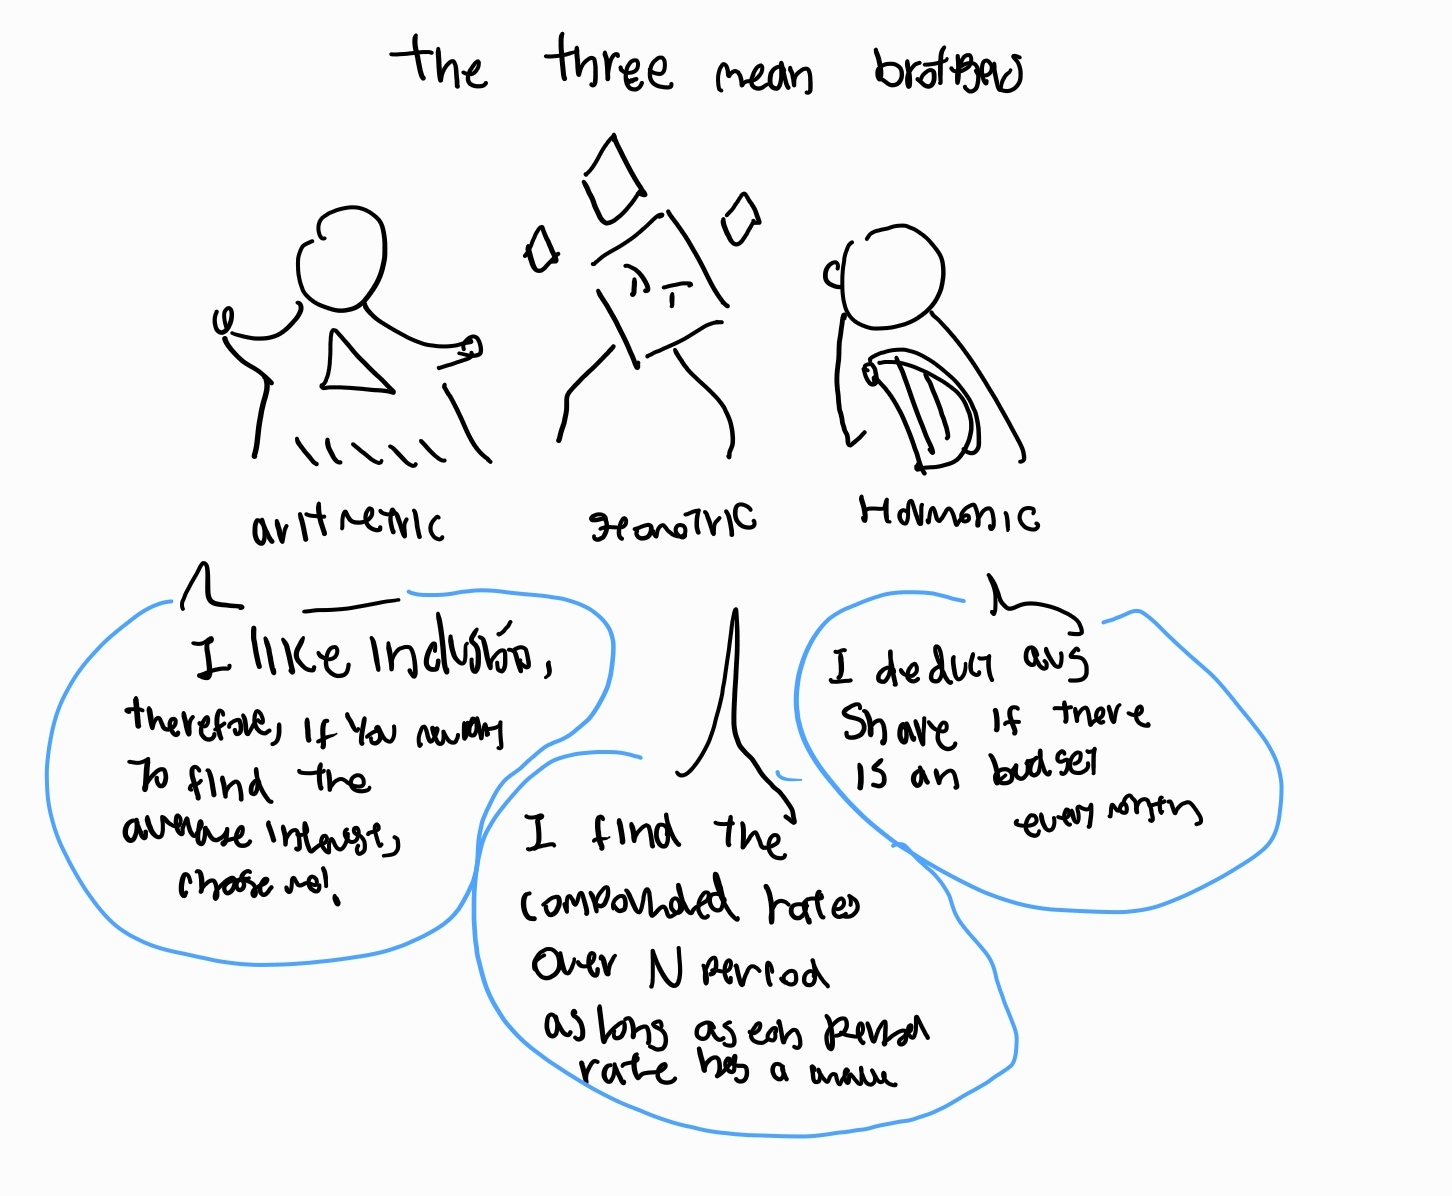 the three mean brothers
aritmetric
geometric
Harmonic
I like inclusion,
therefore, if you
to find the
average interest,
choose me!
I find the
compounded rates
over N period
as long as each period
rate has a
I deduct avg
share if there
is an budget
every month